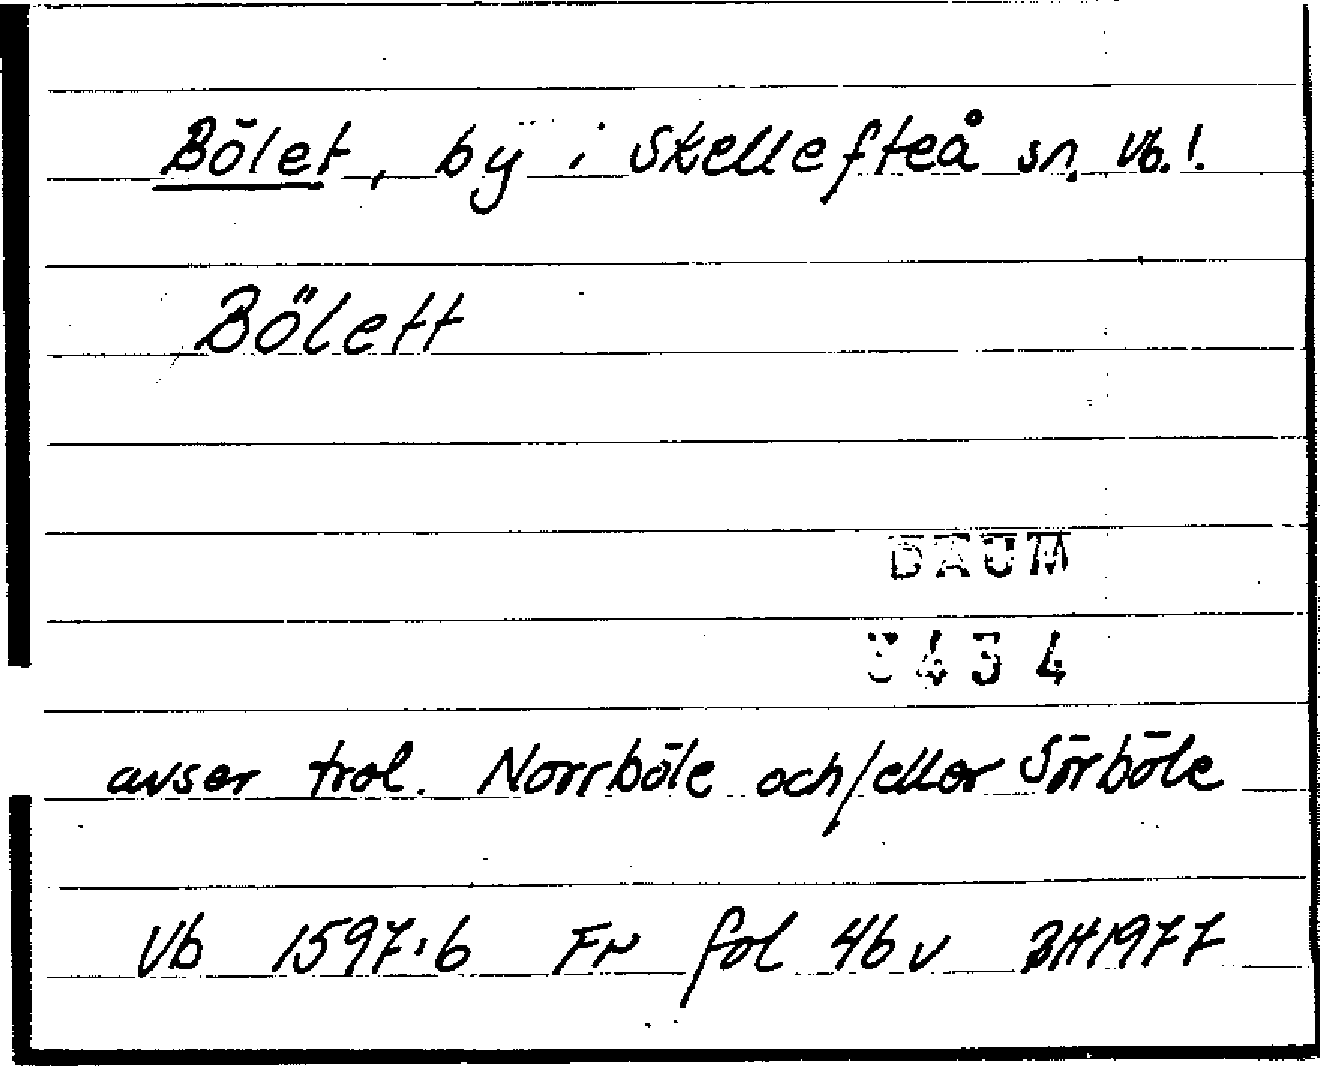 Bölet, by i Skellefteå sn, Vb. l.
Bölett
DAUM
3434
avser trol. Norrböle och/eller Sörböle
Vb 1597:6 Fr fol 46 v BH 1977